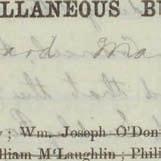 LLANEOUS BU
ard Ma
; Wm. Joseph O'Don
lliam M'Laughlin; Phil